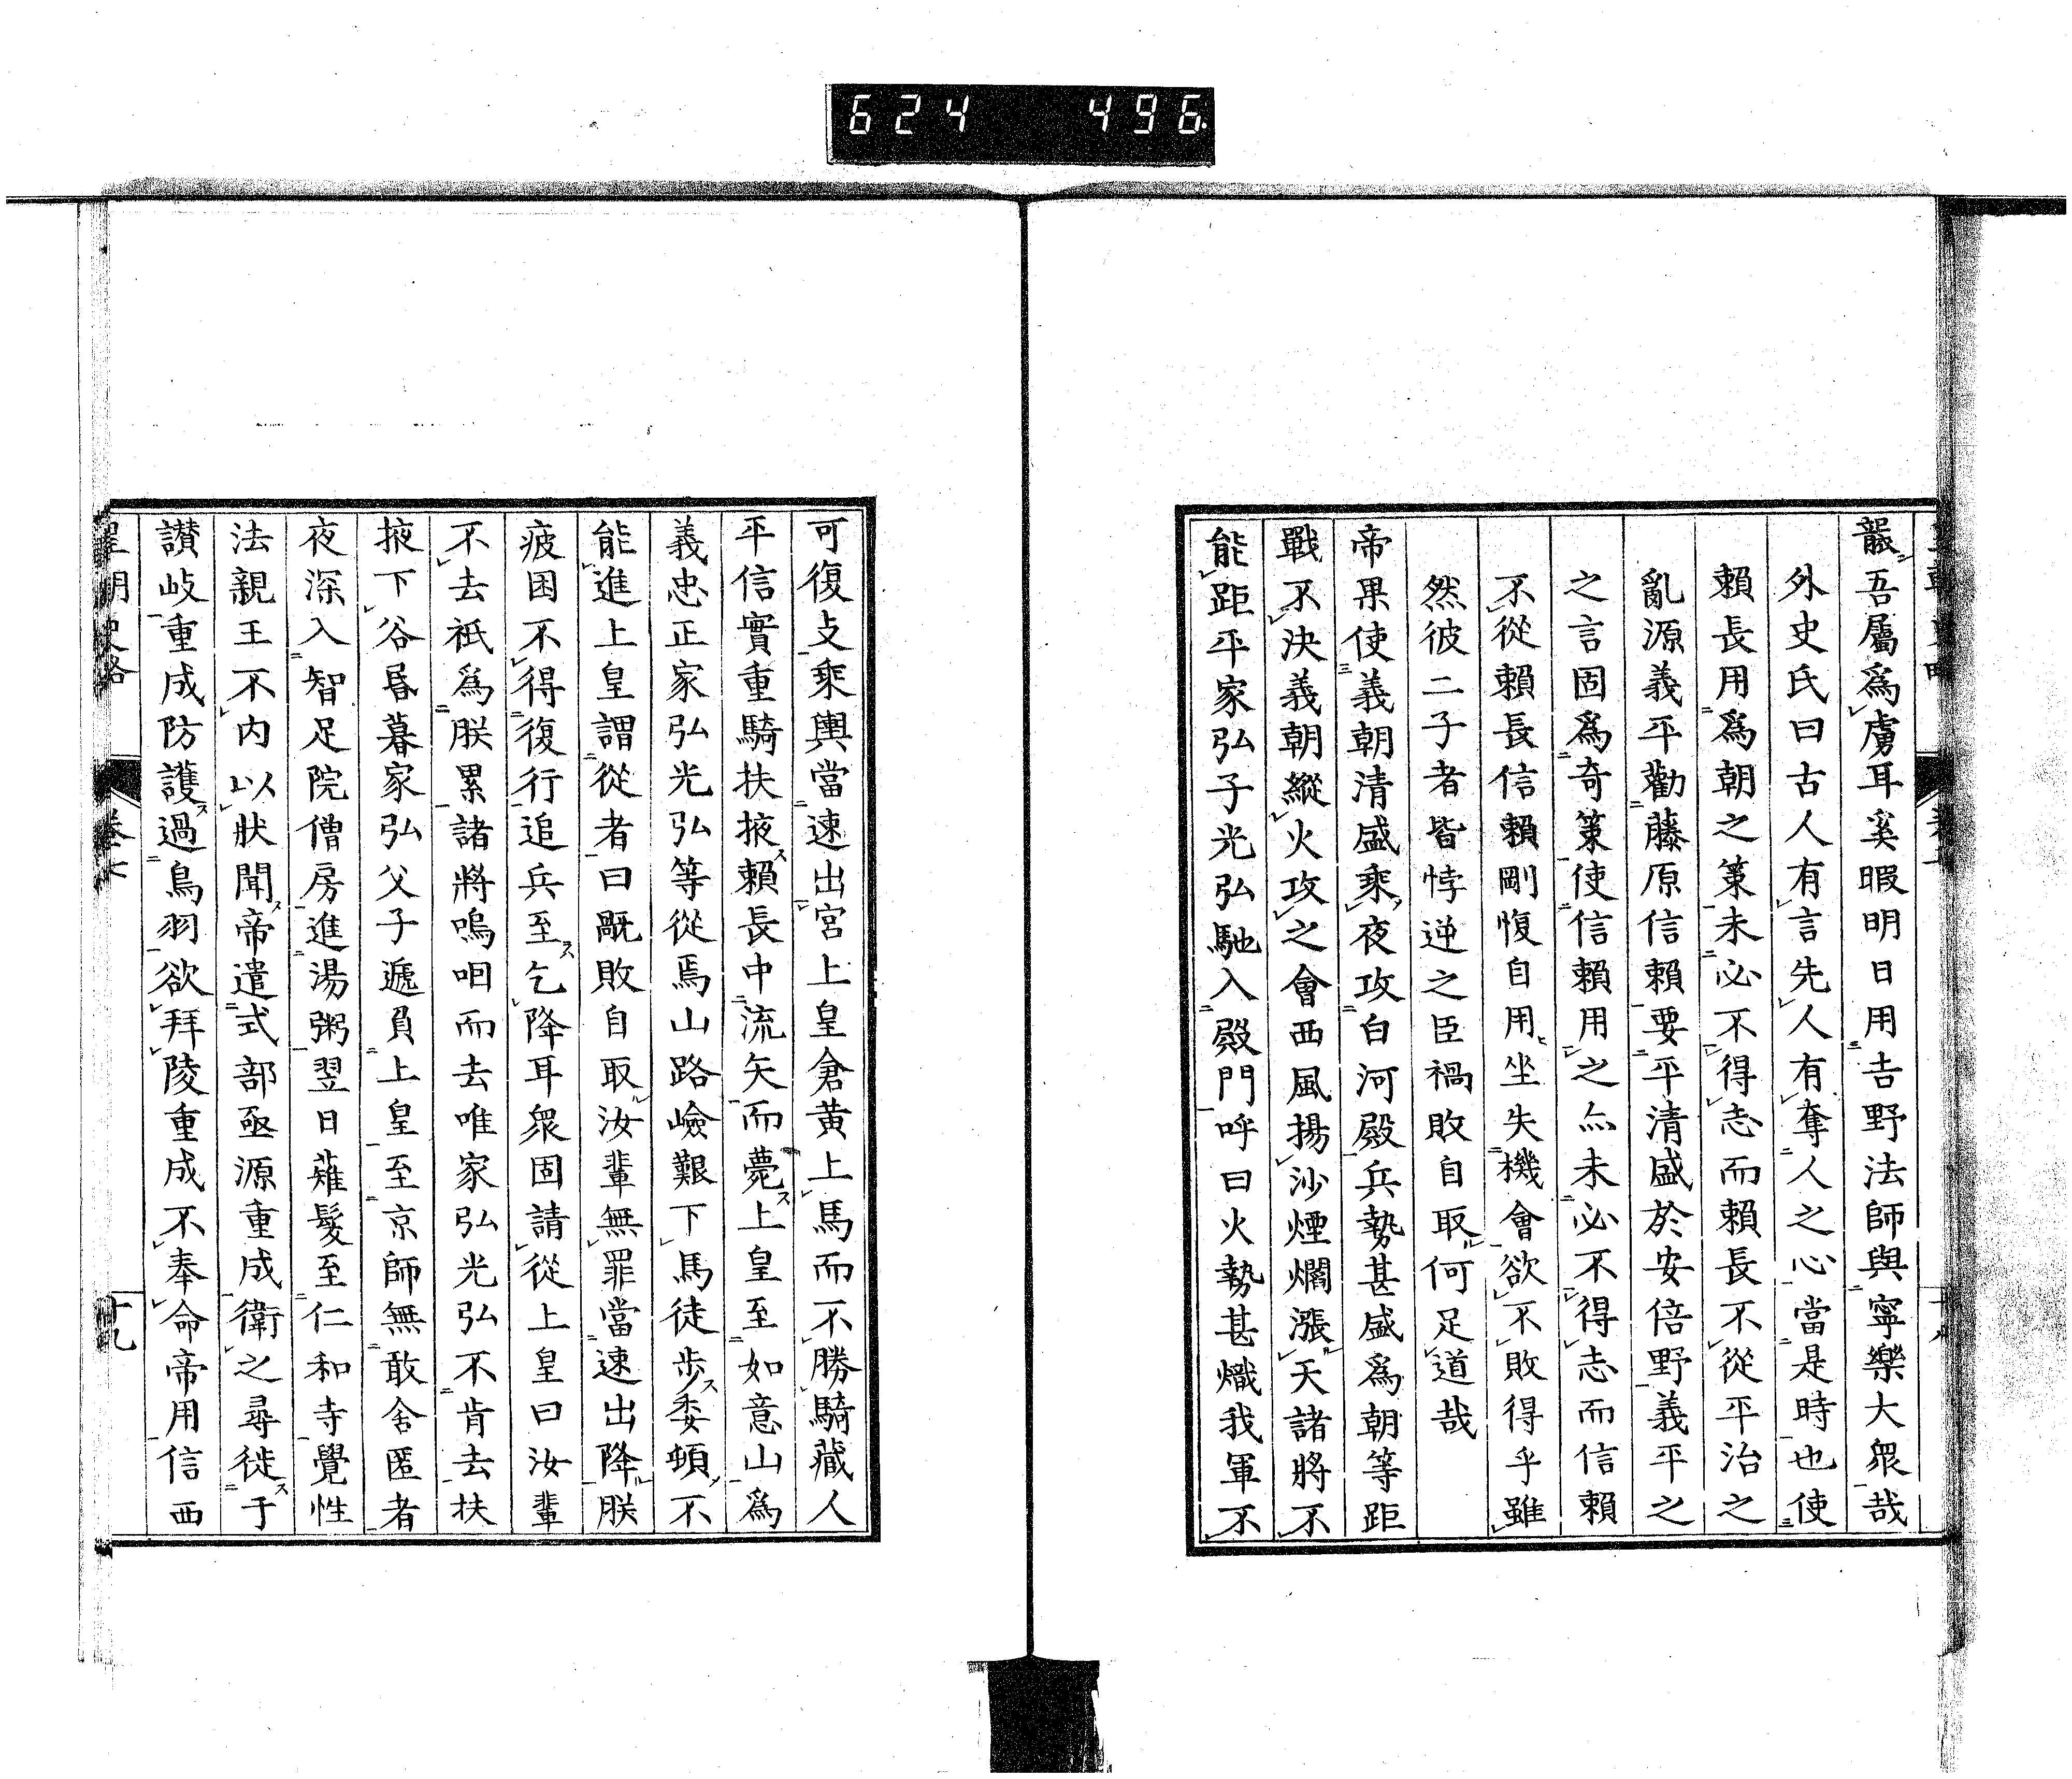 624 496
襲吾屬爲虜耳奚暇明日用吉野法師與寧樂大衆哉
外史氏曰古人有言先人有奪人之心當是時也使
賴長用爲朝之策未必不得志而賴長不從平治之
亂源義平勸藤原信賴要平清盛於安倍野義平之
之言固爲奇策使信賴用之亦未必不得志而信賴
不從賴長信賴剛愎自用坐失機會欲不敗得乎雖
然彼二子者皆悖逆之臣禍敗自取何足道哉
帝果使義朝清盛乘夜攻白河殿兵勢甚盛爲朝等距
戰不決義朝縱火攻之會西風揚沙煙爛漲天諸將不
能距平家弘子光弘馳入殿門呼曰火勢甚熾我軍不
可復支乘輿當速出宮上皇倉黄上馬而不勝騎藏人
平信實重騎扶掖賴長中流矢而薨上皇至如意山爲
義忠正家弘光弘等從焉山路嶮艱下馬徒歩委頓不
能進上皇謂從者曰厩敗自取汝輩無罪當速出降朕
疲困不得復行追兵至乞降耳衆固請從上皇曰汝輩
不去祇爲朕累諸將嗚咽而去唯家弘光弘不肯去扶
掖下谷昏暮家弘父子遞負上皇至京師無敢舍匿者
夜深入智足院僧房進湯粥翌日薙髮至仁和寺覺性
法親王不内以狀聞帝遣式部亟源重成衛之尋徙于
讃岐重成防護過鳥羽欲拜陵重成不奉命帝用信西
皇朝史略 卷七 十九